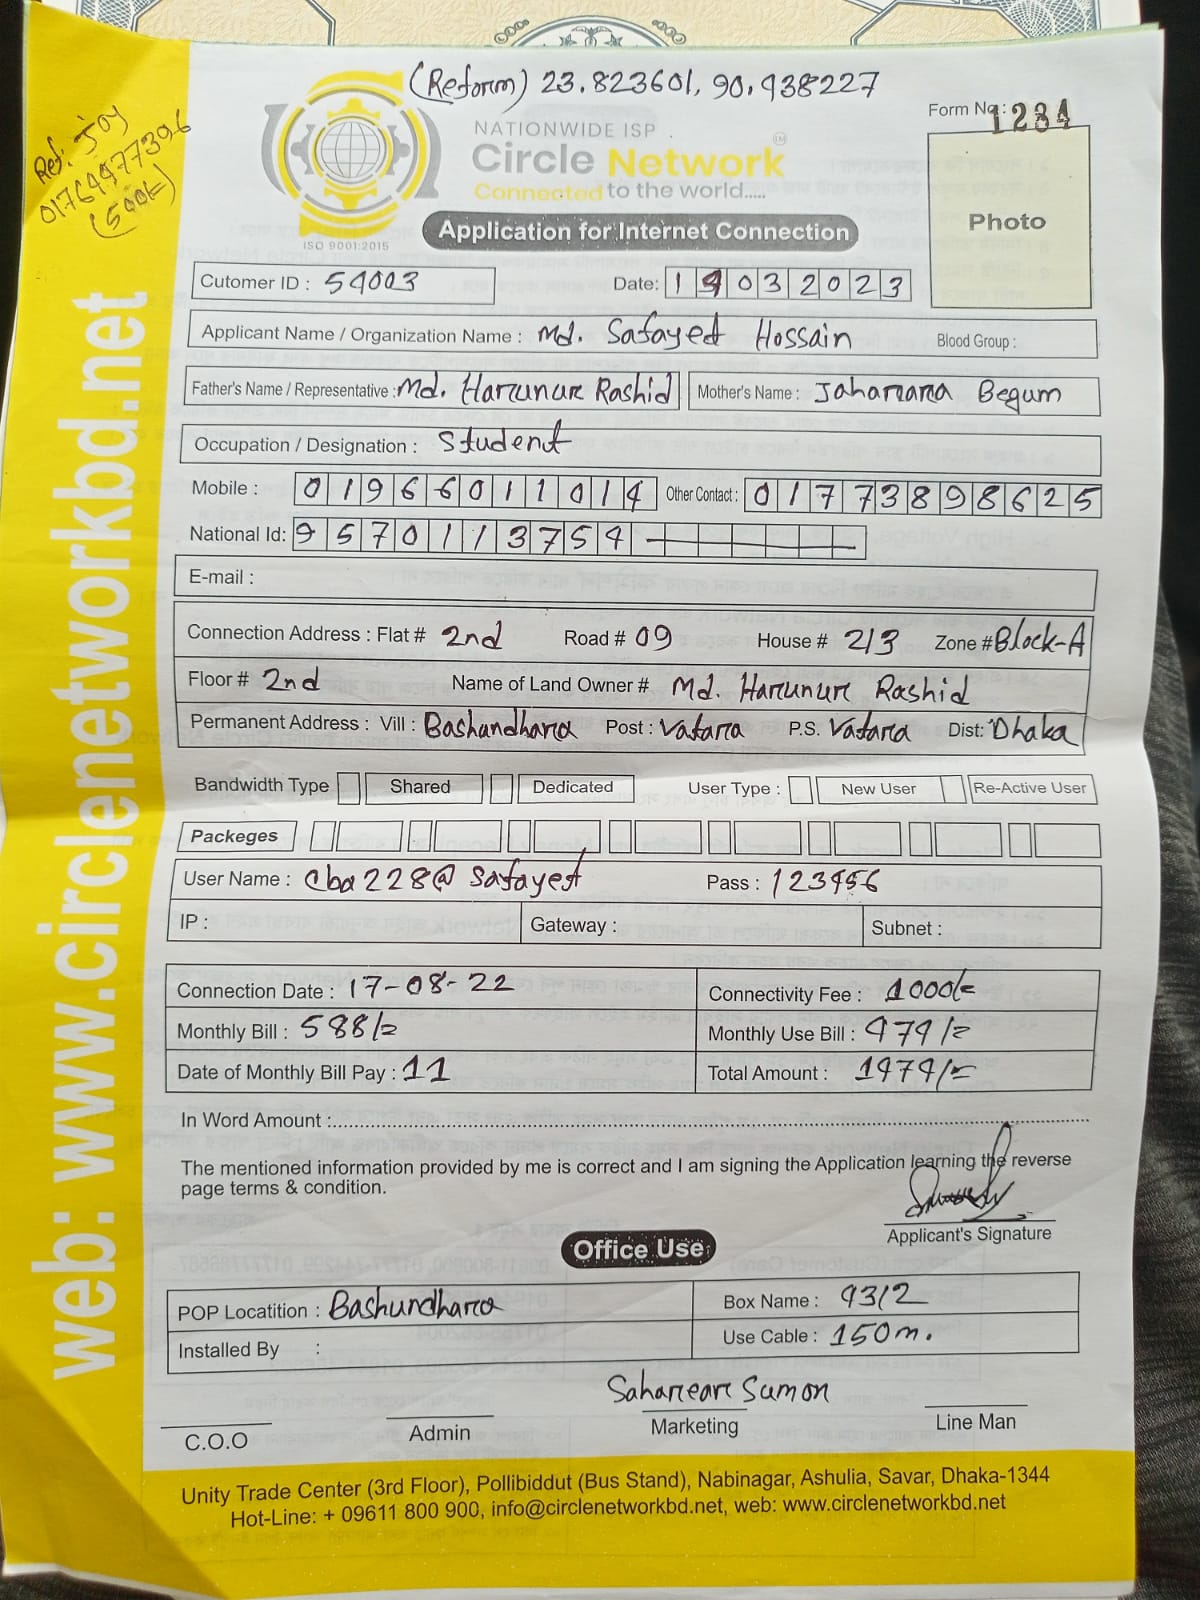 (Reform) 23.823601, 90.438227
Ref: Joy
(500/=)
Form No: 1234
NATIONWIDE ISP
Circle Network
Connected to the world.....
ISO 9001:2015
Application for Internet Connection
Photo
Cutomer ID : 54003 Date: 14032023
Applicant Name / Organization Name : Md. Safayed Hossain Blood Group :
Father's Name / Representative : Md. Harunur Rashid Mother's Name : Jaharana Begum
Occupation / Designation : Student
Mobile : 01966011014 Other Contact : 01773898625
National Id: 9570113754
E-mail :
Connection Address : Flat # 2nd Road # 09 House # 213 Zone # Block-A
Floor # 2nd Name of Land Owner # Md. Harunur Rashid
Permanent Address : Vill : Bashundhara Post : Vatara P.S. Vatara Dist: Dhaka
Bandwidth Type Shared Dedicated User Type : New User Re-Active User
Packeges
User Name : cba228@safayet Pass : 123456
IP : Gateway : Subnet :
Connection Date : 17-08-22 Connectivity Fee : 1000/=
Monthly Bill : 588/= Monthly Use Bill : 474/=
Date of Monthly Bill Pay : 11 Total Amount : 1474/=
In Word Amount :
The mentioned information provided by me is correct and I am signing the Application learning the reverse
page terms & condition.
Applicant's Signature
Office Use
POP Locatition : Bashundhara Box Name : 93/2
Installed By : Use Cable : 150m.
Sahareare Sumon
C.O.O Admin Marketing Line Man
Unity Trade Center (3rd Floor), Pollibiddut (Bus Stand), Nabinagar, Ashulia, Savar, Dhaka-1344
Hot-Line: + 09611 800 900, info@circlenetworkbd.net, web: www.circlenetworkbd.net
web: www.circlenetworkbd.net